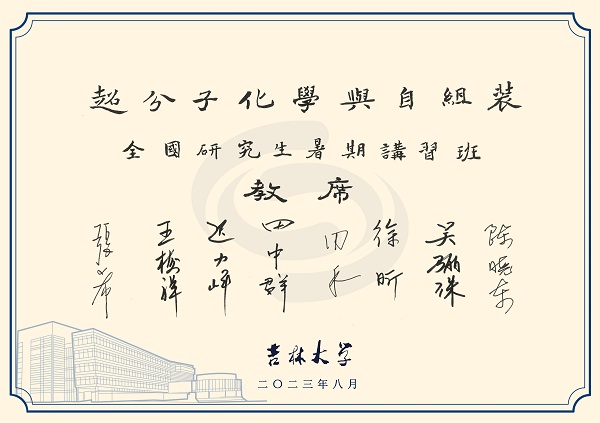 超分子化學與自組裝
全國研究生暑期講習班
教席
張希
王樹
遲力峰
田中群
田禾
徐昕
吴骊珠
陈晓东
吉林大学
二〇二三年八月